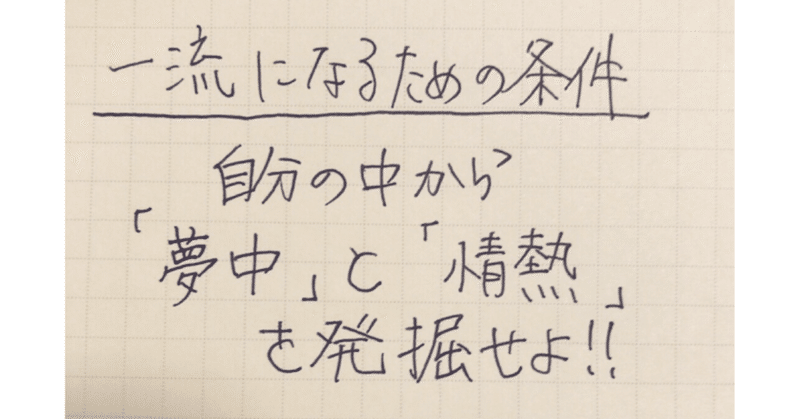 一流になるための条件
自分の中から
「夢中」と「情熱」
を発掘せよ!!